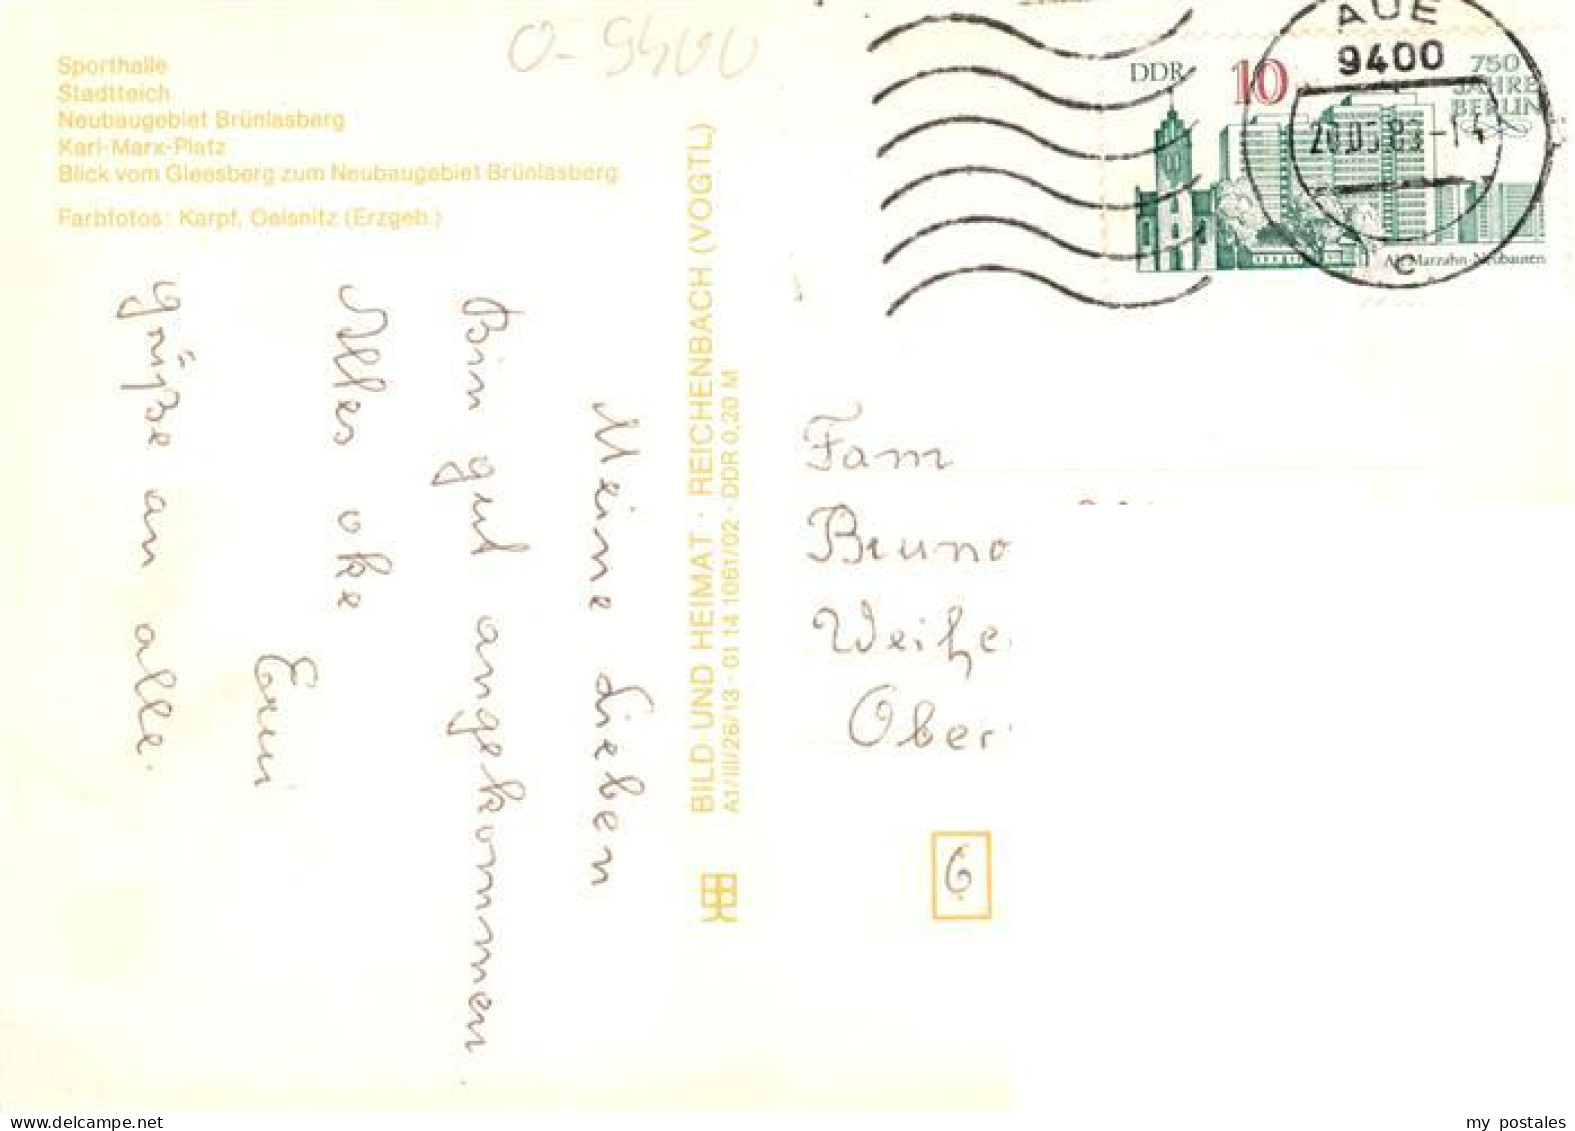 Sporthalle
Stadtteich
Neubaugebiet Brünlasberg
Karl-Marx-Platz
Blick vom Gleesberg zum Neubaugebiet Brünlasberg
Farbfotos: Karpf, Oelsnitz (Erzgeb.)
O-9400
Meine Lieben
Bin gut angekommen
Alles oke
Erni
grüße an alle.
BILD UND HEIMAT · REICHENBACH (VOGTL)
A1/III/26/13 · 01 14 1061/02 · DDR 0,20 M
AUE
9400
-14
C
DDR
10
750
JAHRE
BERLIN
Alt-Marzahn · Neubauten
Fam
Bruno
Weihe
Ober
6
www.delcampe.net
my_postales